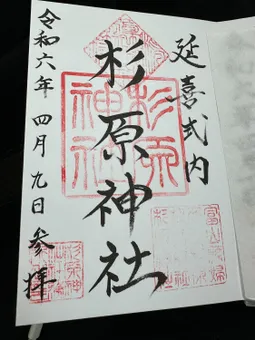 延喜式内
杉原神社
令和六年 四月九日 参拝
杉原神社